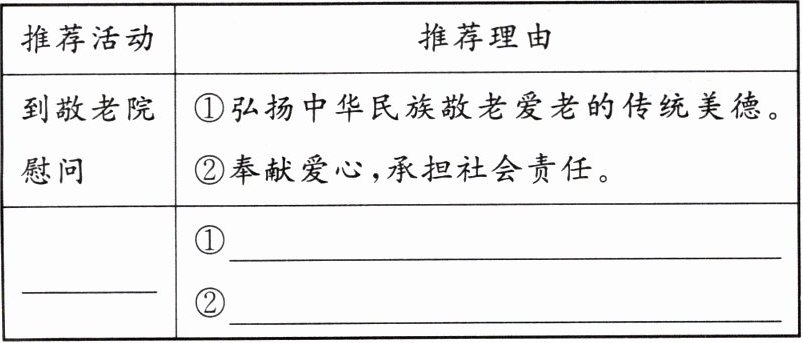 推荐活动 推荐理由
到敬老院慰问 ①弘扬中华民族敬老爱老的传统美德。
②奉献爱心,承担社会责任。
①
②